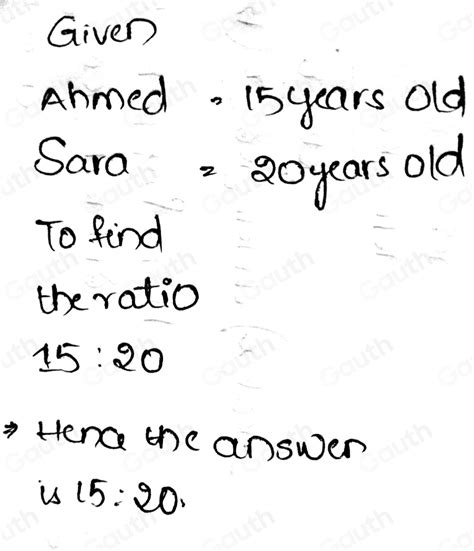 Given
Ahmed = 15years old
Sara = 20years old
To find
the ratio
15 : 20
⇒ Hence the answer
is 15 : 20.